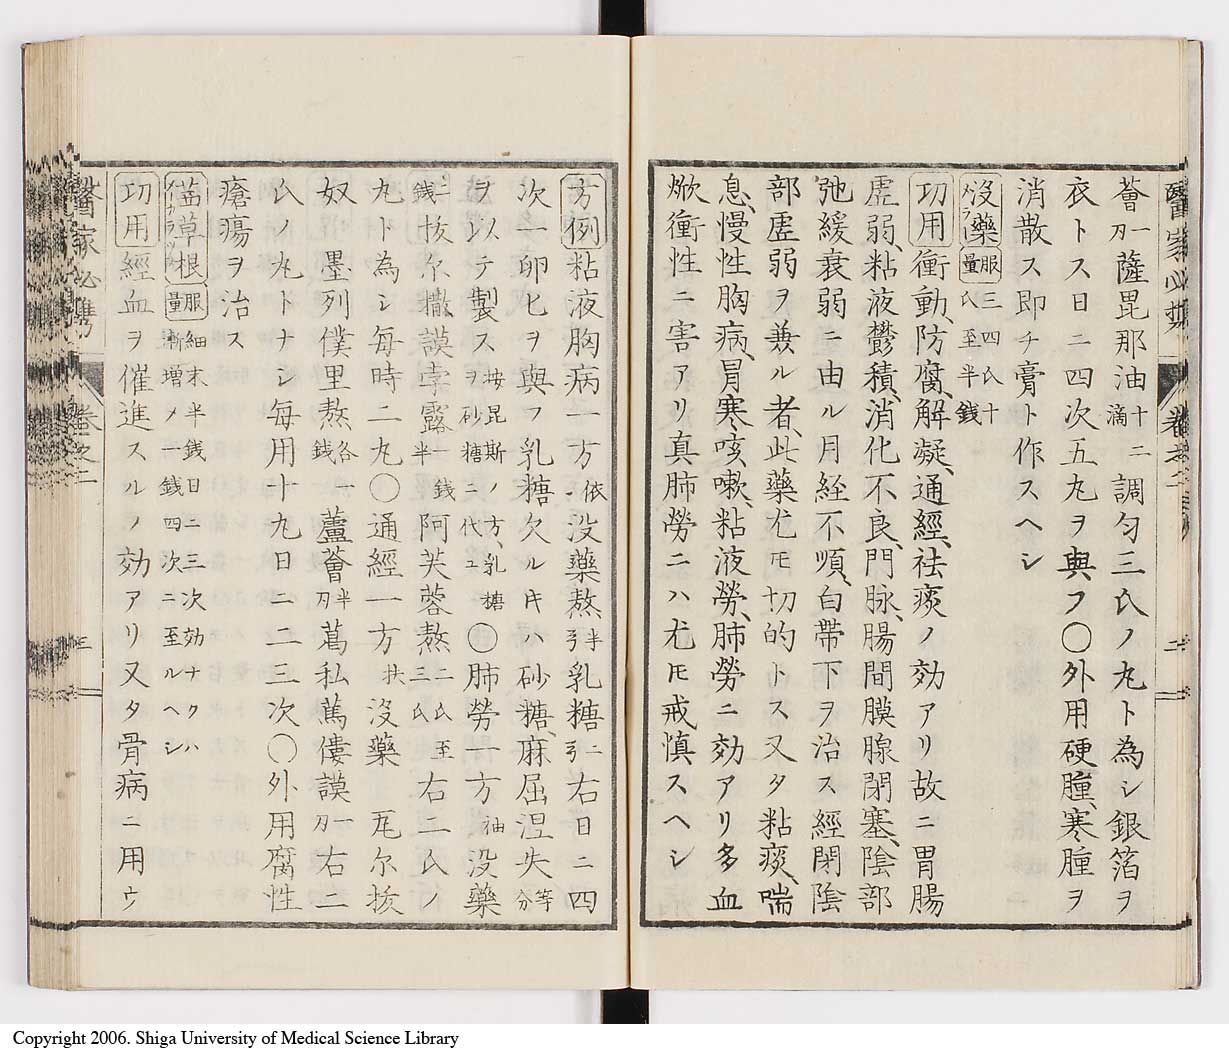 薈一刃薩毘那油十二滴調匀三氏ノ丸ト為シ銀箔ヲ
衣トス日二四次五丸ヲ與フ〇外用硬腫、寒腫ヲ
消散ス即チ膏ト作スヘシ
沒藥 服量 三四氏十氏至半銭
功用 衝動、防腐、解凝、通經、祛痰ノ効アリ故ニ胃腸
虚弱、粘液鬱積、消化不良、門脉、腸間膜腺閉塞、陰部
弛緩衰弱ニ由ル月経不順、白帶下ヲ治ス經閉陰
部虚弱ヲ兼ル者、此藥尤𪜈切的トス又タ粘痰、喘
息、慢性胸病、胃寒咳嗽、粘液勞、肺勞ニ効アリ多血
焮衝性ニ害アリ真肺勞ニハ尤𪜈戒慎スヘシ
方例 粘液胸病一方 依 没藥熬 半引 乳糖 二引 右日ニ四
次一卵匕ヲ與フ乳糖欠ルキハ砂糖、麻屈涅失 等分
ヲ以テ製ス 按昆斯ノ方、乳糖ヲ砂糖ニ代ユ 〇肺勞一方 抽 没藥
二銭 抜尓撒謨孛露 一銭半 阿芙蓉熬 二氏至三氏 右二氏ノ
丸ト為シ毎時二丸〇通經一方 扶 沒藥 厎尓抜
奴墨列僕里熬 各一銭 蘆薈 半刃 萬私萬僂謨 一刃 右二
氏ノ丸トナシ毎用十丸日ニ二三次〇外用腐性
瘡瘍ヲ治ス
茜草根 服量 細末半銭日ニ二三次効ナクハ漸増メ一銭四次ニ至ルヘシ
功用 經血ヲ催進スルノ効アリ又タ骨病ニ用ウ
醫家必携 卷之二 三
Copyright 2006. Shiga University of Medical Science Library